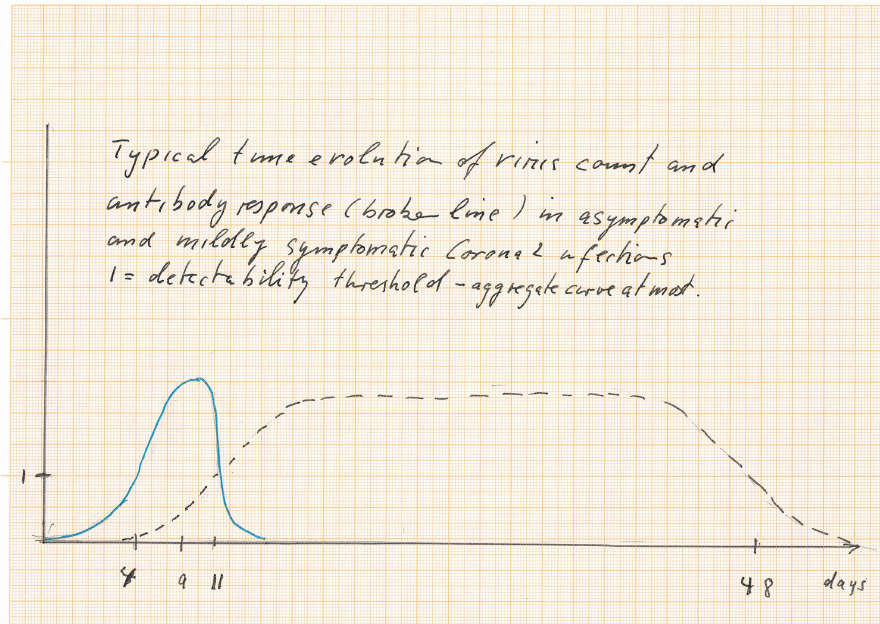 Typical time evolution of virus count and
antibody response (broken line) in asymptomatic
and mildly symptomatic Corona 2 infections
1 = detectability threshold - aggregate curve at most.
1
4 9 11 48 days